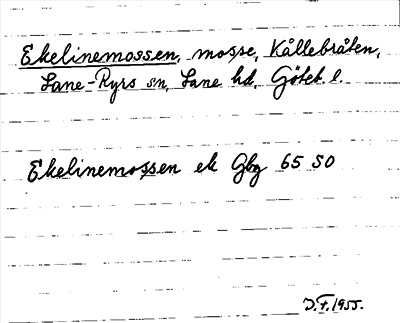 Ekelinemossen, mosse, Kållebråten,
Lane-Ryrs sn, Lane hd, Göteb. l.
Ekelinemossen ek Gbg 65 50
D.F. 1955.